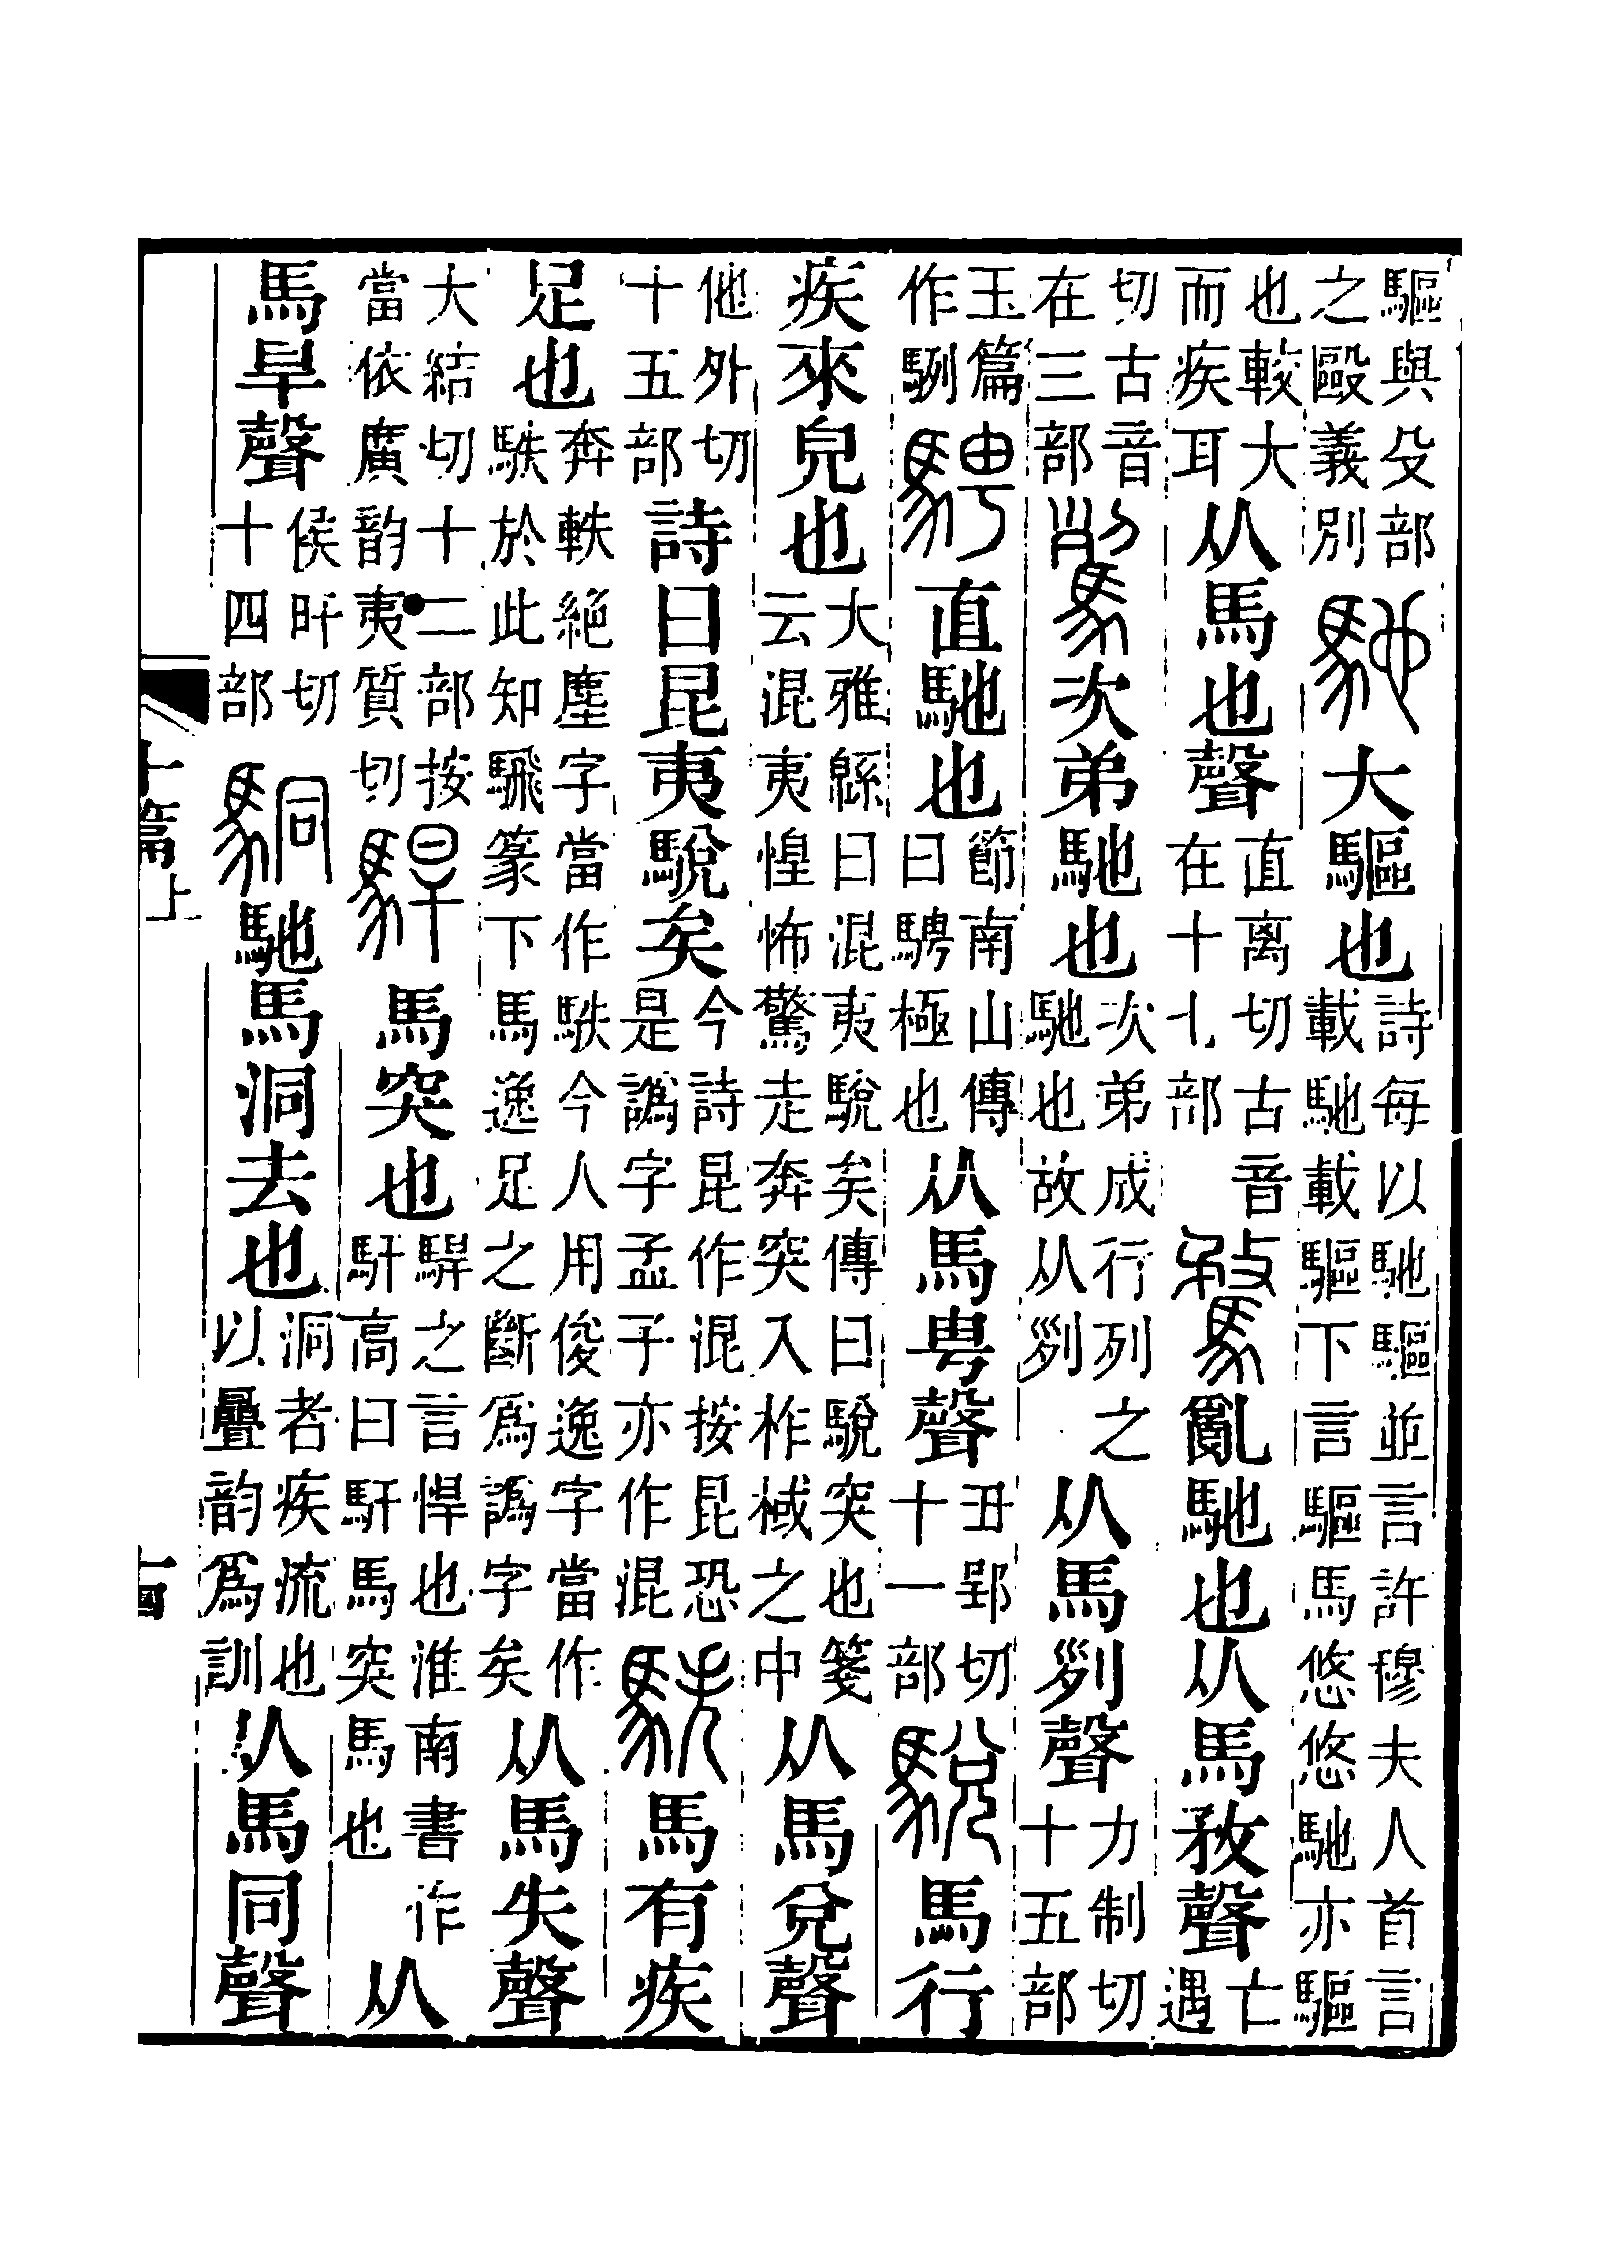 驅與殳部
之毆義別
馳大驅也
詩每以馳驅並言許穆夫人首言
載馳載驅下言驅馬悠悠馳亦驅
也較大
而疾耳
从馬也聲
直离切古音
在十七部
騖亂馳也从馬敄聲
亡
遇
切古音
在三部
䮋次弟馳也
次弟成行列之
馳也故从𠛱
从馬𠛱聲
力制切
十五部
玉篇
作䮋
騁直馳也
節南山傳
曰騁極也
从馬甹聲
丑郢切
十一部
駾馬行
疾來皃也
大雅緜曰混夷駾矣傳曰駾突也箋
云混夷惶怖驚走奔突入柞棫之中
从馬兌聲
他外切
十五部
詩曰昆夷駾矣
今詩昆作混按昆恐
是譌字孟子亦作混
䭿馬有疾
足也
奔軼絕塵字當作䭿今人用俊逸字當作
䭿於此知䮄篆下馬逸足之斷爲譌字矣
从馬失聲
大結切十二部按
當依廣韵夷質切
駻馬突也
駻之言悍也淮南書作
馯高曰馯馬突馬也
从
馬旱聲
矦旰切
十四部
駧馳馬洞去也
洞者疾流也
以疊韵爲訓
从馬同聲
十篇上
十四